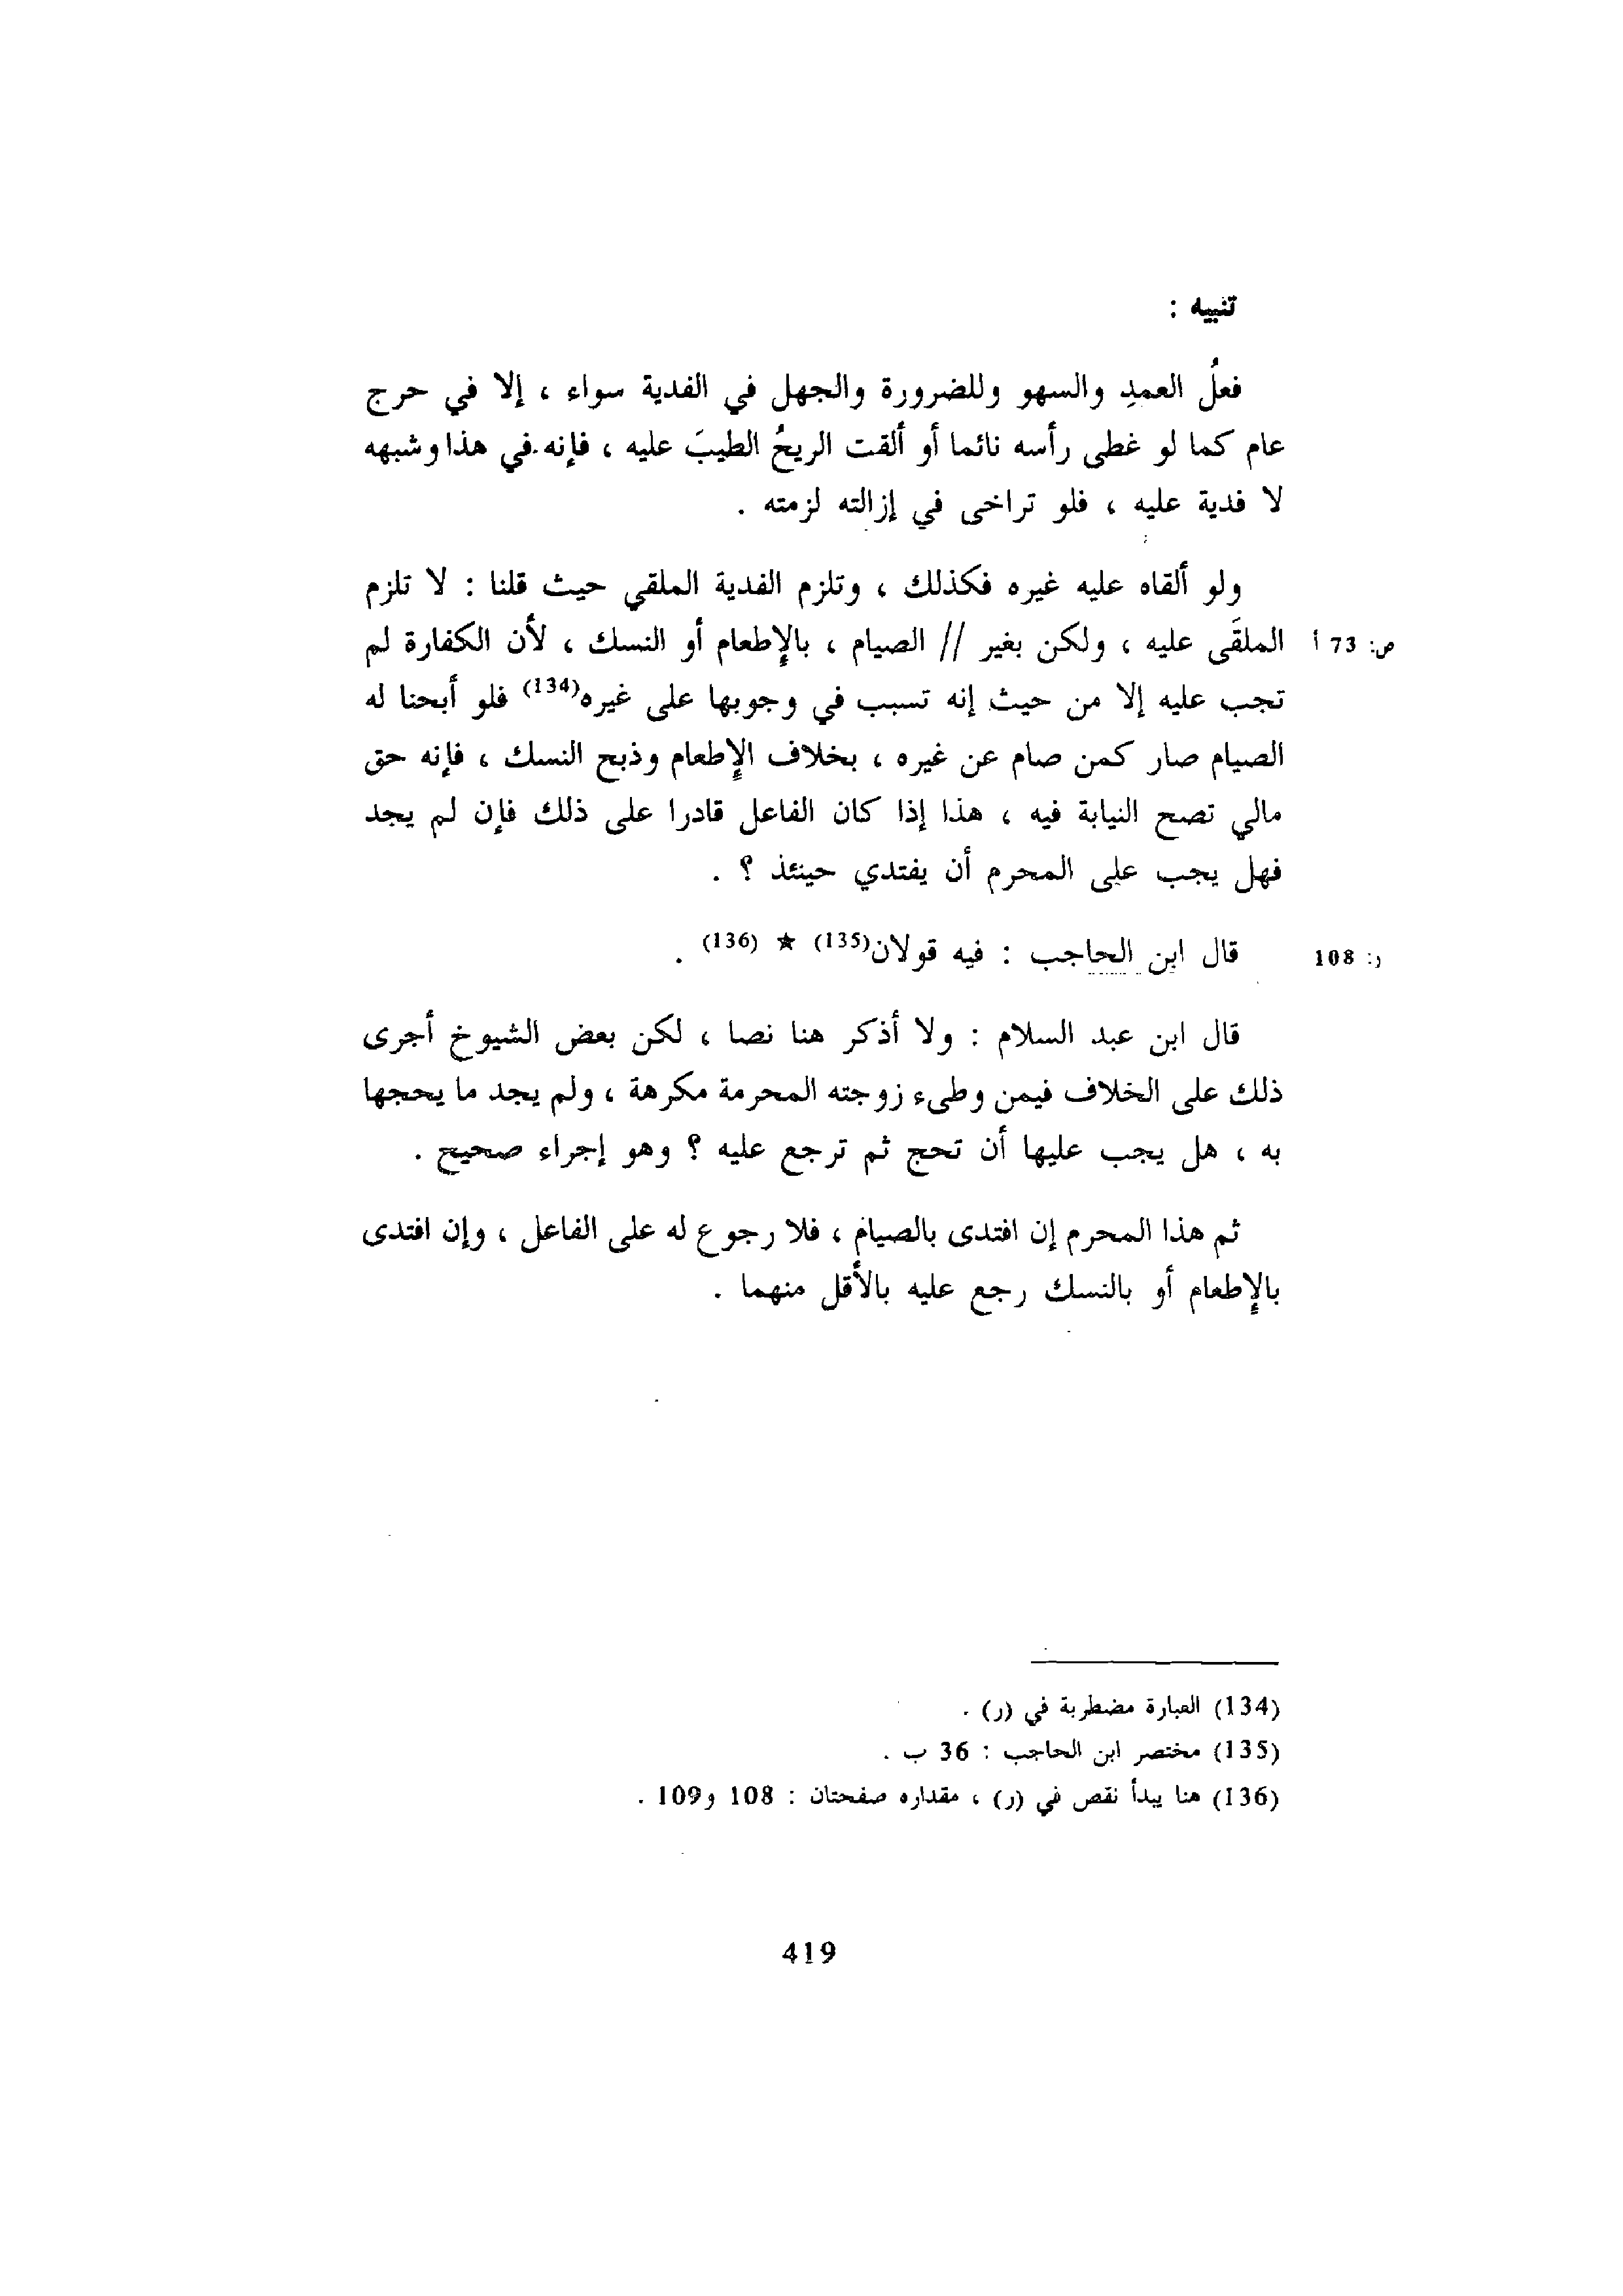 تنبيه :
فعلُ العمدِ والسهو وللضرورة والجهل في الفدية سواء ، إلا في حرج
عام كما لو غطى رأسه نائما أو ألقت الريحُ الطيبَ عليه ، فإنه في هذا وشبهه
لا فدية عليه ، فلو تراخى في إزالته لزمته .
ولو ألقاه عليه غيره فكذلك ، وتلزم الفدية الملقي حيث قلنا : لا تلزم
ص: 73 أ الملقَى عليه ، ولكن بغير // الصيام ، بالإطعام أو النسك ، لأن الكفارة لم
تجب عليه إلا من حيث إنه تسبب في وجوبها على غيره(134) فلو أبحنا له
الصيام صار كمن صام عن غيره ، بخلاف الإطعام وذبح النسك ، فإنه حق
مالي تصح النيابة فيه ، هذا إذا كان الفاعل قادرا على ذلك فإن لم يجد
فهل يجب على المحرم أن يفتدي حينئذ ؟ .
ر: 108 قال ابن الحاجب : فيه قولان(135) ★ (136) .
قال ابن عبد السلام : ولا أذكر هنا نصا ، لكن بعض الشيوخ أجرى
ذلك على الخلاف فيمن وطىء زوجته المحرمة مكرهة ، ولم يجد ما يحججها
به ، هل يجب عليها أن تحج ثم ترجع عليه ؟ وهو إجراء صحيح .
ثم هذا المحرم إن افتدى بالصيام ، فلا رجوع له على الفاعل ، وإن افتدى
بالإطعام أو بالنسك رجع عليه بالأقل منهما .
(134) العبارة مضطربة في (ر) .
(135) مختصر ابن الحاجب : 36 ب .
(136) هنا يبدأ نقص في (ر) ، مقداره صفحتان : 108 و109 .
419